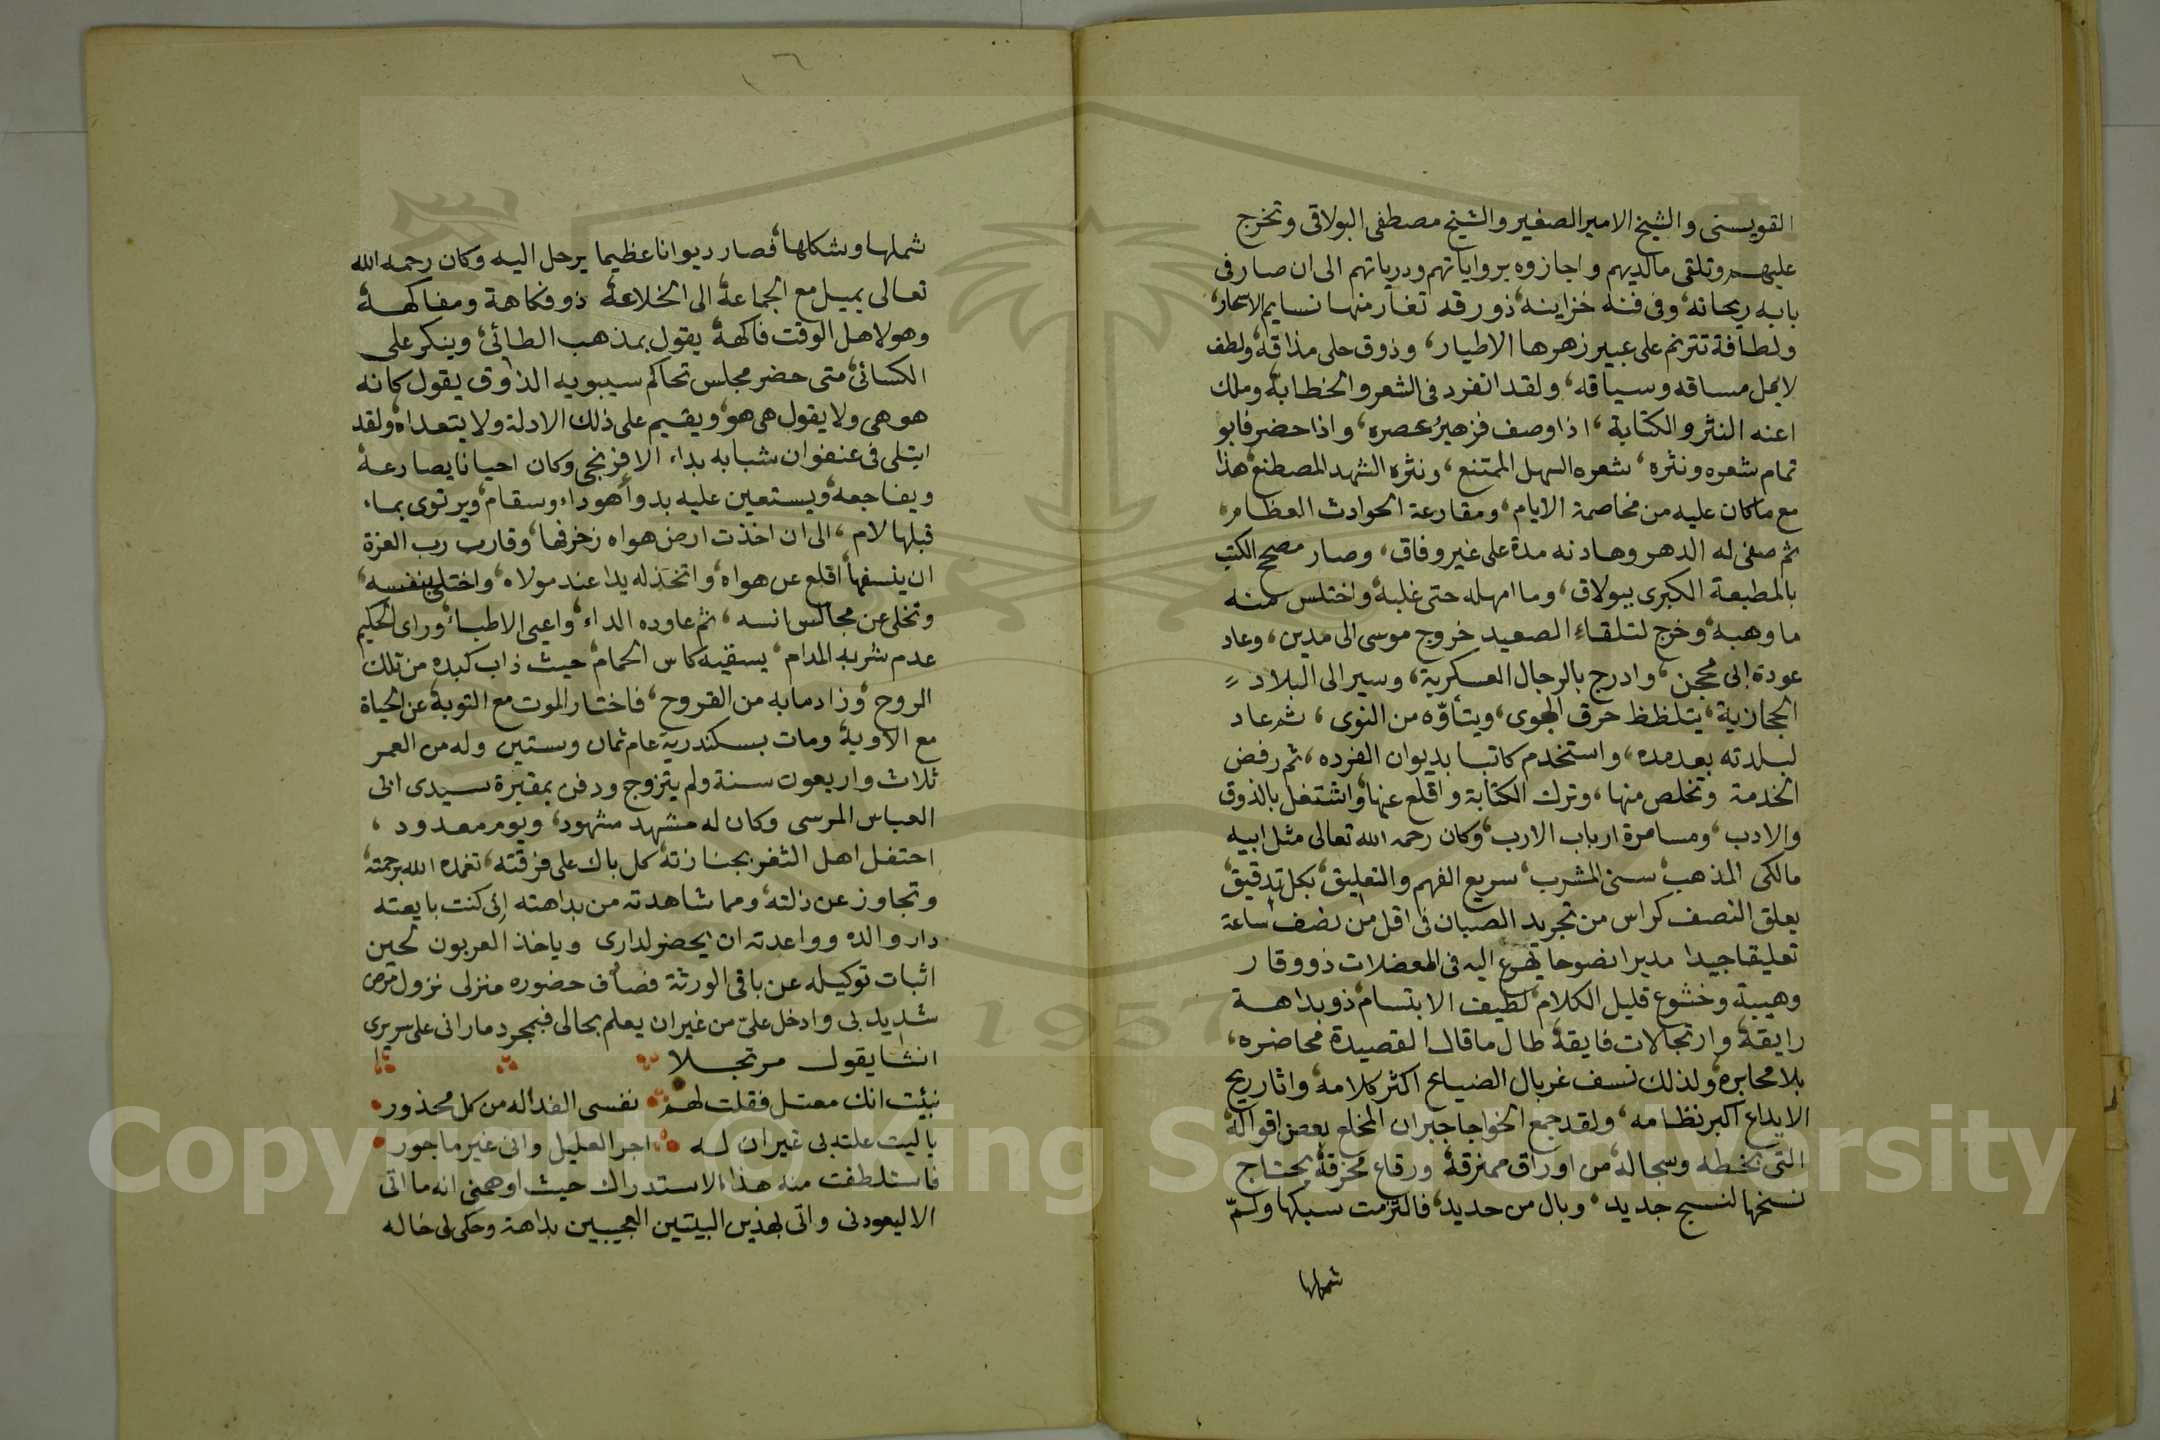 القويسنى والشيخ الامير الصغير والشيخ مصطفى البولاقى وتخرج
عليهم وتلقى مالديهم واجازوه بروایاتهم ودریاتهم الى ان صار فى
بابه ريحانه، وفى فنه خزاينه، ذو رقه تغار منها نسايم الاسحار،
ولطافة تترنم على عبير زهرها الاطيار، وذوق حلى مذاقه، ولطف
لايمل مساقه وسياقه، ولقد انفرد فى الشعر والخطابة، وملك
اعنه النثر والكتابة، اذا وصف فزهير عصره، واذا حضر فابو
تمام شعره ونثره، شعره السهل الممتنع، ونثره الشهد المصطنع، هذا
مع ماكان عليه من مخاصمة الايام، ومقارعة الحوادث العظام،
ثم صفى له الدهر وهادنه مدة على غير وفاق، وصار مصحح الكتب
بالمطبعة الكبرى ببولاق، وما امهله حتى غلبه، واختلس منه
ما وهبه، وخرج لتلقاء الصعيد خروج موسى الى مدين، وعاد
عودة ابى محجن، وادرج بالرجال العسكرية، وسير الى البلاد
الحجازية، يتلظظ حرق الهوى، ويتأوه من النوى، ثم عاد
لبلدته بعد مده، واستخدم كاتبا بديوان الفرده، ثم رفض
الخدمة وتخلص منها، وترك الكتابة واقلع عنها، واشتغل بالذوق
والادب، ومسامرة ارباب الارب، وكان رحمه الله تعالى مثل ابيه
مالكى المذهب، سنى المشرب، سريع الفهم والتعليق، بكل تدقيق،
يعلق النصف كراس من تجريد الصبان فى اقل من نصف ساعة
تعليقا جيدا مديرا نضوحا يهرع اليه فى المعضلات ذو وقار
وهيبة وخشوع قليل الكلام، لطيف الابتسام، ذو بداهة
رايقة، وارتجالات فايقة، طال ما قال القصيدة محاضره،
بلا محابره، ولذلك نسف غربال الضياع اكثر كلامه، واثار ريح
الايداع اكبر نظامه، ولقد جمع الخواجا جبران المخلع بعض اقواله،
التى بخطه وسجاله، من اوراق ممزقة، ورقاع مخرقة، يحتاج
نسخها لنسج جديد، وبال من حديد، فالتزمت سبكها ولمّ
شملها
٦
شملها وشكلها، فصار ديوانا عظيما يرحل اليه وكان رحمه الله
تعالى يميل مع الجماعة، الى الخلاعة، ذو فكاهة ومفاكهة،
وهو لاهل الوقت فاكهة، يقول بمذهب الطائى، وينكر على
الكسائى، متى حضر مجلس تحاكم سيبويه الذوق يقول كانه
هو هى ولا يقول هى هو، ويقيم على ذلك الادلة ولا يتعداه، ولقد
ابتلى فى عنفوان شبابه بداء الافرنجى وكان احيانا يصارعه،
ويفاجعه، ويستعين عليه بدواء هو داء وسقام، ويرتوى بماء
قبلها لام، الى ان اخذت ارض هواه زخرفها، وقارب رب العزة
ان ينسفها، اقلع عن هواه، واتخذ له يدا عند مولاه، واختلى بنفسه،
وتخلى عن مجالس انسه، ثم عاوده الداء، واعيى الاطباء، وراى الحكيم
عدم شربه المدام، يسقيه كاس الحمام، حيث ذاب كبده من تلك
الروح، وزاد ما به من القروح، فاختار الموت مع التوبة، عن الحياة
مع الاوبة، ومات بسكندرية عام ثمان وستين وله من العمر
ثلاث واربعون سنة ولم يتزوج ودفن بمقبرة سيدى ابى
العباس المرسى وكان له مشهد مشهود، ويوم معدود،
احتفل اهل الثغر بجنازته، كل باك على فرقته، تغمده الله برحمته،
وتجاوز عن ذلته، ومما شاهدته من بداهته انى كنت بايعته
دار والده وواعدته ان يحضر لدارى وياخذ العربون لحين
اثبات توكيله عن باقى الورثة فصاف حضوره منزلى نزول مرض
شديد بى وادخل علىّ من غير ان يعلم بحالى فبمجرد مارانى على سريرى
انشا يقول مرتجلا
نبئت انك معتل فقلت لهم نفسى الفدا له من كل محذور
ياليت علته بى غير ان له اجر العليل وانى غير ماجور
فاستلطفت منه هذا الاستدراك حيث اوهمنى انه ما اتى
الا ليعودنى واتى بهذين البيتين العجيبين بداهة وحكى لى خاله
1957
Copyright © King Saud University